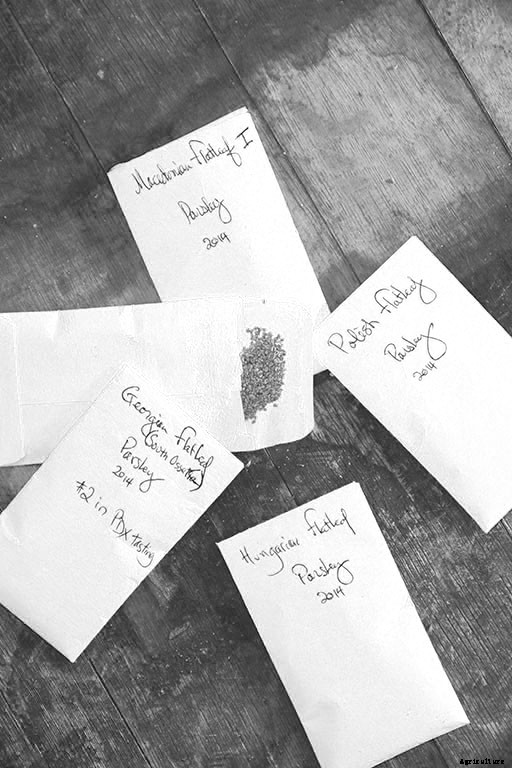 Macedonian flatleaf I
Parsley
2014
Polish flatleaf
Parsley
2014
Georgian flatleaf
(South Ossetian)
Parsley
2014
#2 in PDX tasting
Hungarian flatleaf
Parsley
2014
Agriculture